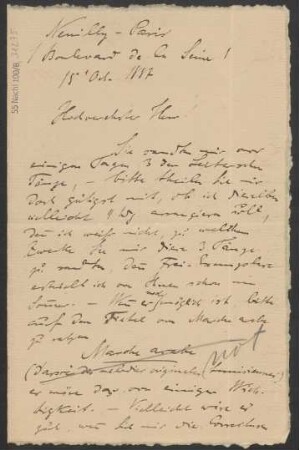 Neuilly-Paris
1 Boulevard de la Seine 1
15t Oct. 1887
Hochverehrter Herr!
Sie sandten mir vor
einigen Tagen 3 der
Tänze, – bitte theilen Sie mir
doch gütigst mit, ob ich dieselben
vielleicht arrangieren soll,
da ich nicht weiß, zu welchem
Zwecke Sie mir diese 3 Tänze
zu sandten. Das Frei-Exemplar
erhielt ich von Ihnen schon im
Sommer. – Wenn es möglich ist bitte
auf den Titel von Marche arabe
zu setzen
Marche arabe
(d'après des mélodies originales)
es wäre das von einiger Wich-
tigkeit. – Vielleicht wäre es
gut, wenn Sie mir die Correctur